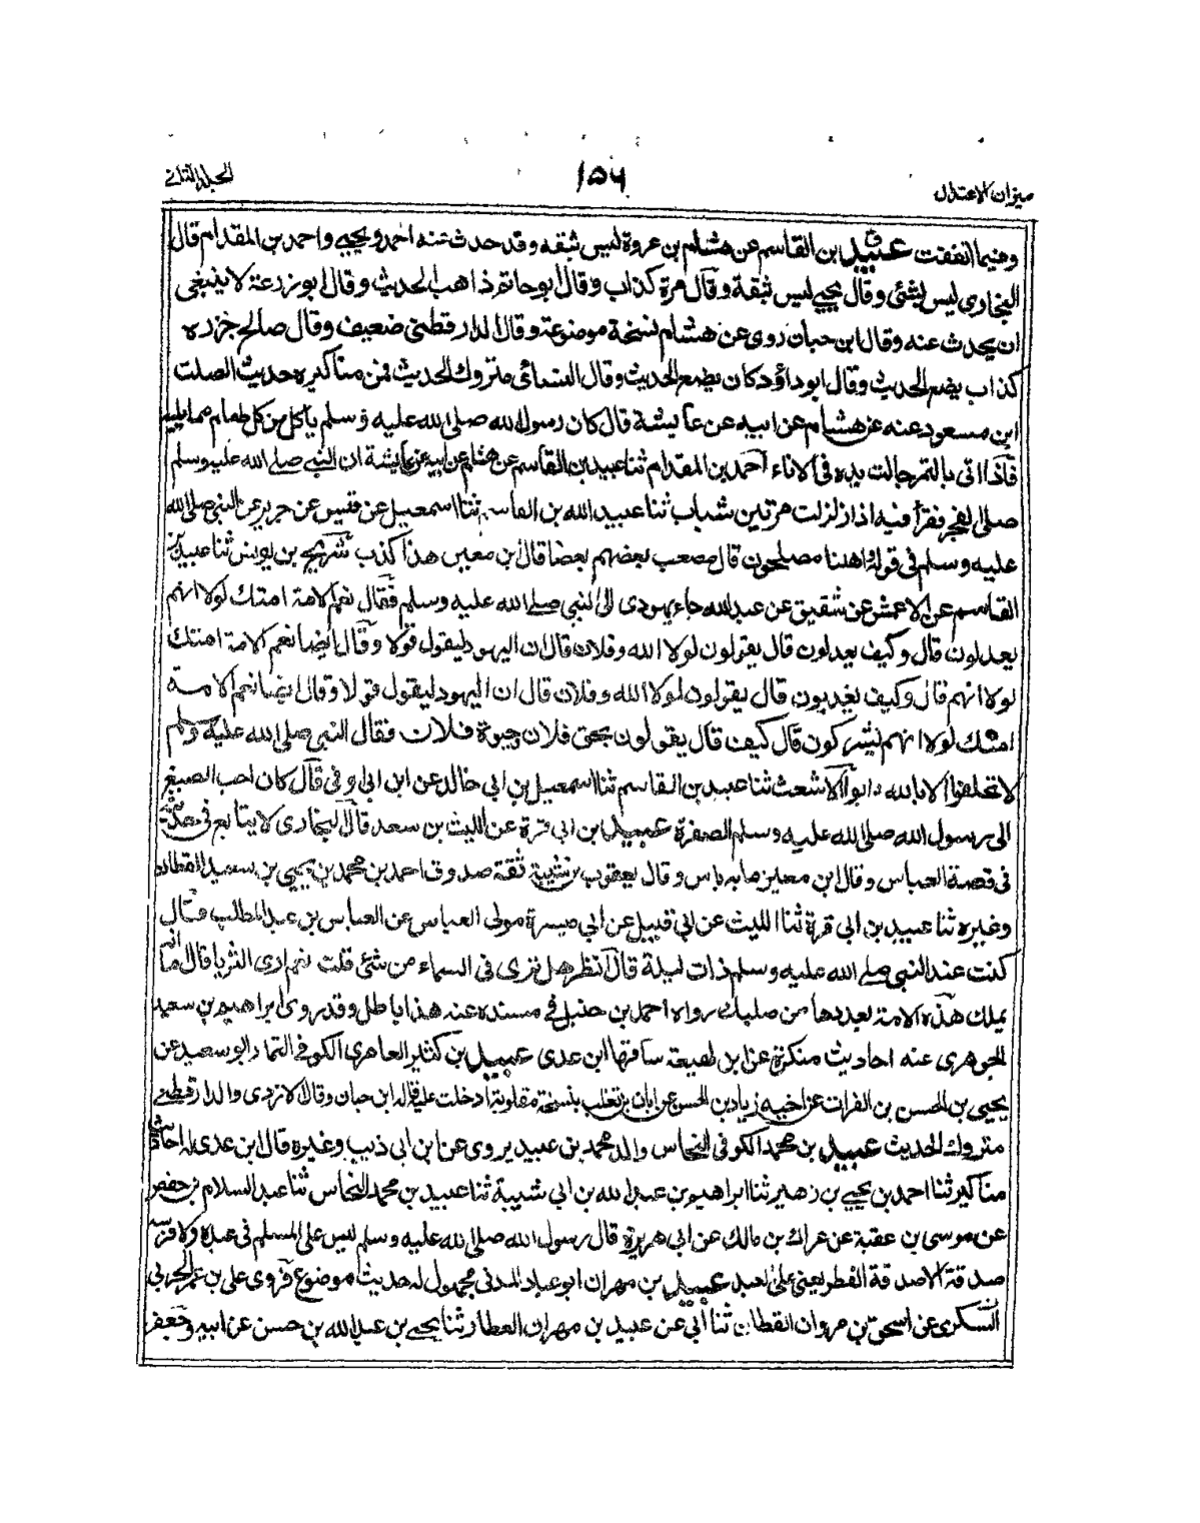 ميزان الاعتدال
١٥٦
الجلد الثانى
وفيما اتفقت عبيد ابن القاسم عن هشام بن عروة ليس بثقه وقد حدث عنه احمد ويحيى واحمد بن المقدام قال
البخارى ليس بشئ وقال يحيى ليس بثقة وقال مرة كذاب وقال ابو حاتم ذاهب الحديث وقال ابو زرعة لا ينبغى
ان يحدث عنه وقال ابن حبان روى عن هشام نسخة موضوعة وقال الدارقطنى ضعيف وقال صالح جزره
كذاب يضع الحديث وقال ابو داؤد كان يضع الحديث وقال النسائى متروك الحديث فمن مناكيره حديث الصلت
ابن مسعود عنه عن هشام عن ابيه عن عايشة قال كان رسول الله صلى الله عليه وسلم ياكل من كل طعام مما يليه
فاذا اتى بالتمر جالت يده فى الاناء احمد بن المقدام ثنا عبيد بن القاسم عن هشام عن ابيه عن عايشة ان النبى صلى الله عليه وسلم
صلى الفجر فقرأ فيه اذا زلزلت مرتين شباب ثنا عبيد الله بن القاسم ثنا اسمعيل عن قيس عن جرير عن النبى صلى الله
عليه وسلم فى قوله واهلها مصلحون قال صعب بعضهم بعضا قال ابن معين هذا كذب شريح بن يونس ثنا عبيد بن
القاسم عن الاعمش عن شقيق عن عبد الله جاء يهودى الى النبى صلى الله عليه وسلم فقال نعم الامة امتك لولا انهم
يعدلون قال وكيف يعدلون قال يقولون لولا الله وفلان قال ان اليهود ليقول قولا وقال ايضا نعم الامة امتك
لولا انهم قال وكيف يعدبون قال يقولون لولا الله وفلان قال ان اليهود ليقول قولا وقال ايضا نعم الامة
امتك لولا انهم يشركون قال كيف قال يقولون بحق فلان وحيوة فلان فقال النبى صلى الله عليه وسلم
لا تحلفوا الا بالله ابو الاشعث ثنا عبيد بن القاسم ثنا اسمعيل بن ابى خالد عن ابن ابى اوفى قال كان احب الصبغ
الى رسول الله صلى الله عليه وسلم الصفرة عبيد ابن ابى قرة عن الليث بن سعد قال البخارى لا يتابع فى حديثه
فى قصة العباس وقال ابن معين ما به باس وقال يعقوب بن شيبة ثقة صدوق احمد بن محمد بن يحيى بن سعيد القطان
وغيره ثنا عبيد بن ابى قرة ثنا الليث عن ابى قبيل عن ابى ميسرة مولى العباس عن العباس بن عبد المطلب قال
كنت عند النبى صلى الله عليه وسلم ذات ليلة قال انظر هل ترى فى السماء من شئ قلت نعم ارى الثريا قال اما انه
يملك هذه الامة بعددها من صلبك رواه احمد بن حنبل فى مسنده عنه هذا باطل وقد روى ابراهيم بن سعيد
الجوهرى عنه احاديث منكرة عن ابن لهيعة ساقها ابن عدى عبيد بن كثير العامرى الكوفى التمار ابو سعيد عن
يحيى بن الحسن بن الفرات عن اخيه زياد بن الحسن عن ابان بن تغلب بنسخة مقلوبة ادخلت عليه قاله ابن حبان وقال الازدى والدارقطنى
متروك الحديث عبيد بن محمد الكوفى النحاس والد محمد بن عبيد يروى عن ابن ابى ذيب وغيره قال ابن عدى له احاديث
مناكير ثنا احمد بن يحيى بن زهير ثنا ابراهيم بن عبد الله بن ابى شيبة ثنا عبيد بن محمد النحاس ثنا عبد السلام بن حفص
عن موسى بن عقبة عن عراك بن مالك عن ابى هريرة قال رسول الله صلى الله عليه وسلم ليس على المسلم فى عبده ولا فرسه
صدقة الا صدقة الفطر يعنى على العبد عبيد بن مهران ابو عباد المدنى مجهول له حديث موضوع فروى على بن عمر الحربى
السكرى عن اسحق بن مروان القطان ثنا ابى عن عبيد بن مهران العطار ثنا يحيى بن عبد الله بن حسن عن ابيه وجعفر